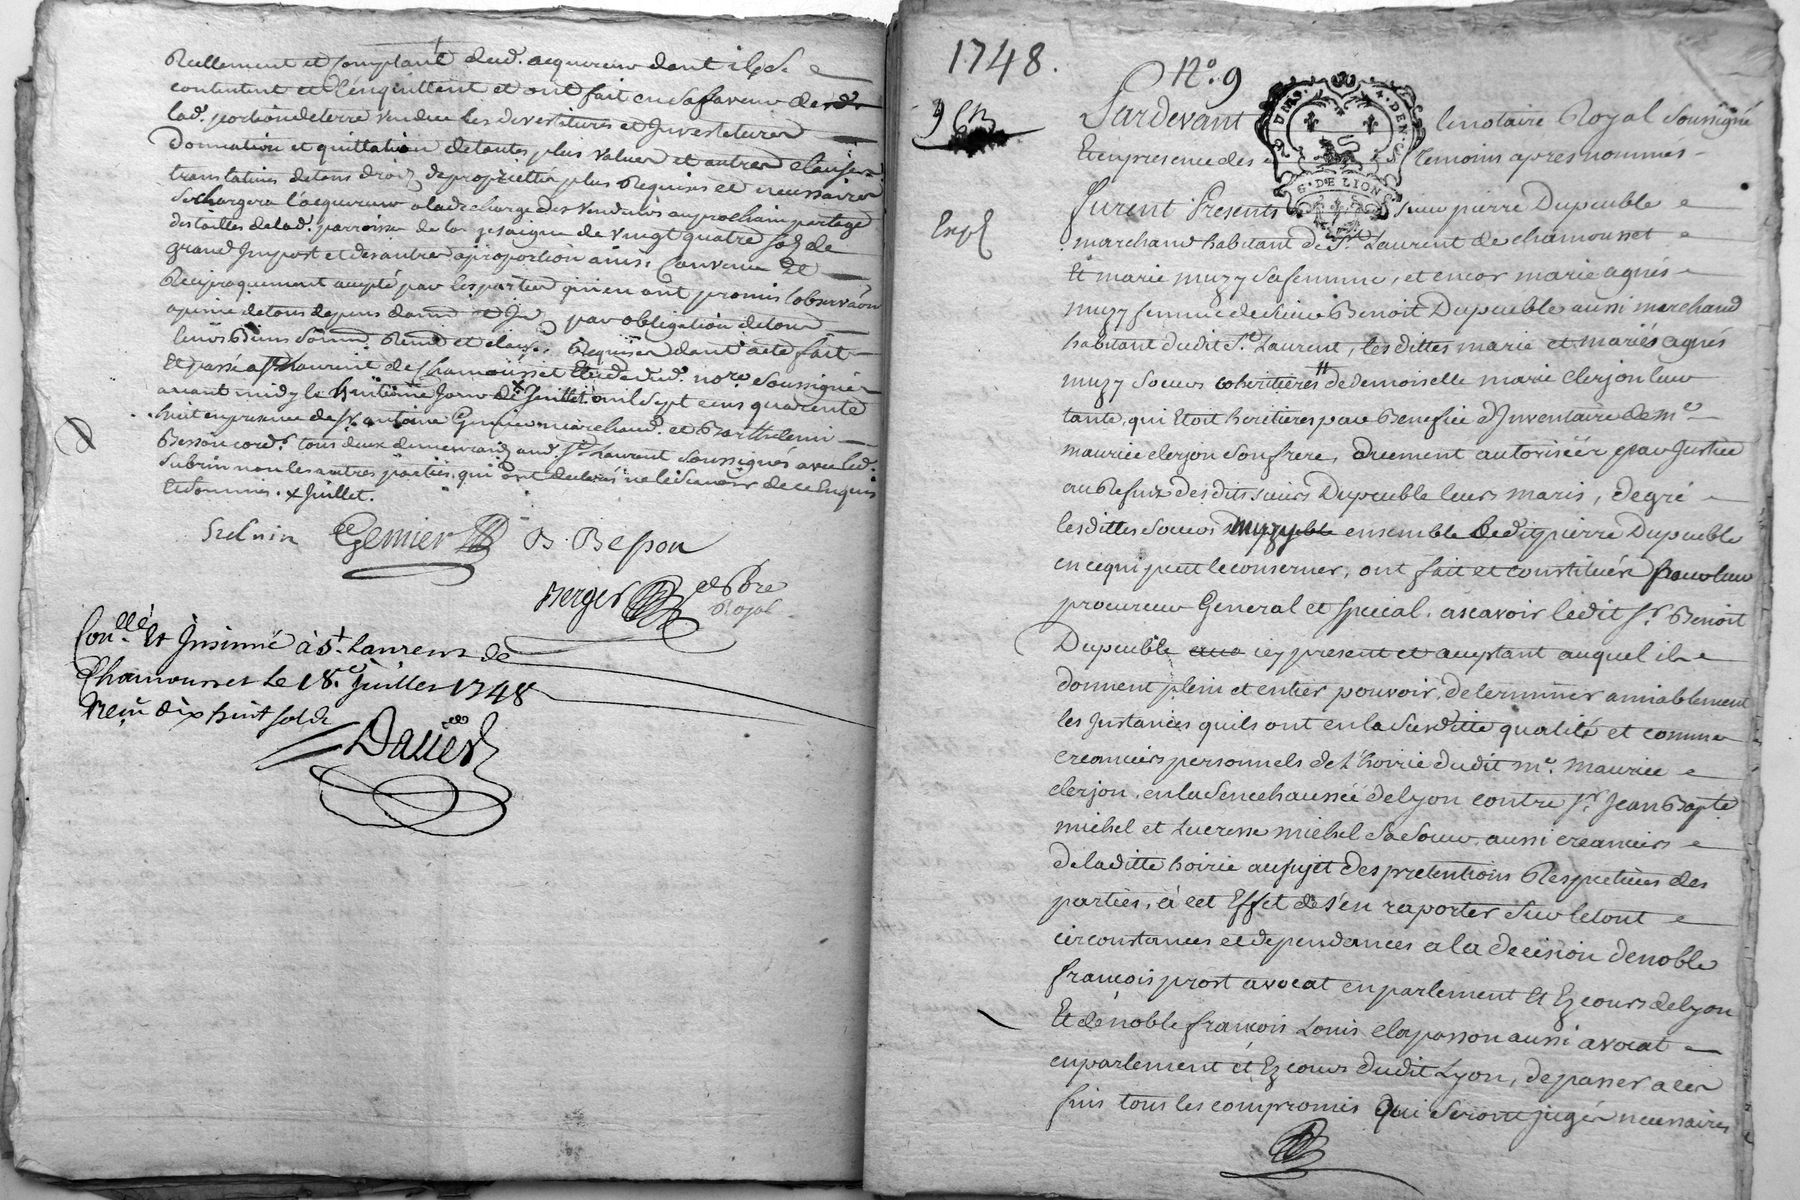 Reellement et Comptant dud. acquereur dont ils se
contentent et l'enquittent et ont fait en sa faveur de
lad. portion de terre vendue les devestitures et Investitures
Donnation et quittation de toutes plus values et autres clauses
translatives de tous droiz de proprietté plus Requises et necessaires
se chargera l'acquereur a la decharge des vendeurs au prochain partage
des tailles de lad. parroisse de la de vingt quatre solz de
grand Impost et des autres a proportion ainsi Convenu et
Reciproquement accepté par les parties qui en ont promis l'observaon
a peine de tous depens dom. par obligation de tous
leurs Biens Soum. Renon. et clauses Requises dont acte fait
Et passé a St Laurent de Chamousset Etude dud. nore. Soussigné
avant midy le huitieme Jour de Juillet mil sept cens quarante
huit en presence de Sr. antoine Gernier marchand. et Barthelemi
Besson cord. tous deux demeurandz aud. St. Laurent Soussignés avec led.
Subrin non les autres parties, qui ont declarés ne le scavoir de ce Enquis
Et sommés. x Juillet.
Subrin Gernier B. Besson
Berger nore Royal
Con.llé Et Insinué à St. Laurens de
Chamousset le 18.e Juillet 1748
Recu dix huit sols
Daued
1748.
No. 9
9 en
Expé
Pardevant le notaire Royal Soussigné
Et en presence des temoins apres nommés
G. DE LION
furent Presents Sieur pierre Dupeuble
marchand habitant de St Laurent de chamousset
Et marie muzy sa femme, et encor marie agnés
muzy femme de sieur Benoit Dupeuble aussi marchand
habitant dudit St. Laurent, les dittes marie et mariés agnés
muzy soeurs coheritieres de demoiselle marie clerjon leur
tante, qui Etoit heritiere par Benefice d'Inventaire de me.
maurice clerjon son frere, duement autorisées par Justice
au Refus desdits sieurs Dupeuble leurs maris, de gré
lesdittes soeurs muzy ensemble ledit pierre Dupeuble
en ce qui peut le conserner, ont fait et constitués pour leur
procureur General et special. ascavoir ledit Sr. Benoit
Dupeuble icy present et aceptant auquel ils
donnent plein et entier pouvoir, de terminer amiablement
les Instances quils ont en la Susditte qualité et comme
creanciers personnels de L'hoirie dudit me. maurice
clerjon, en la Senechaussée de Lyon contre Sr. Jean Bapte
michel et Lucresse michel Sa Soeur aussi creanciers
de laditte hoirie au sujet des pretentions Respectives des
parties, à cet Effet de s'en raporter sur le tout
circonstances et dependances a la decision de noble
françois prost avocat en parlement Et Ez cours de Lyon
Et de noble françois Louis clapasson aussi avocat
en parlement et Ez cours dudit Lyon, de passer a ces
fins tous les compromis qui seront jugés necessaires